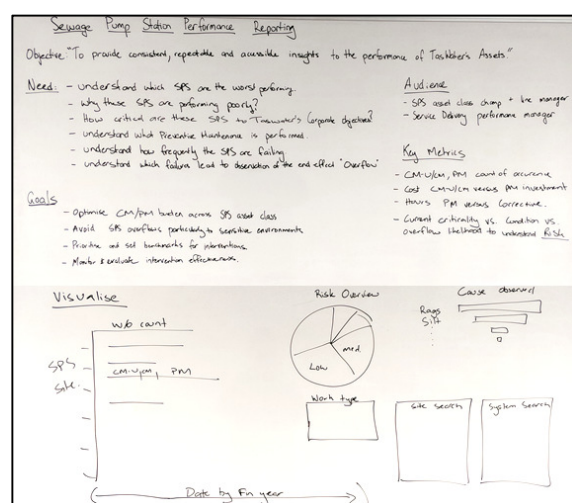 Sewage Pump Station Performance Reporting
Objective "To provide consistent, repeatable and accessible insights to the performance of TasWater's Assets."
Need: - understand which SPS are the worst performing.
- why these SPS are performing poorly?
- How critical are these SPS to Taswater's Corporate objectives?
- understand what Preventive Maintenance is performed.
- understand how frequently the SPS are failing
- understand which failures lead to observation of the end effect "Overflow"
Goals
- Optimise CM/PM burden across SPS asset class
- Avoid SPS overflows particularly to sensitive environments
- Prioritise and set benchmarks for interventions.
- Monitor & evaluate intervention effectiveness.
Audience
- SPS asset class champ + line manager
- Service Delivery performance manager
Key Metrics
- CM-U/CM, PM count of occurance
- Cost CM-U/CM versus PM investment
- Hours PM versus Corrective.
- Current criticality vs. Condition vs.
overflow likelihood to understand Risk
Visualise
w/o count
SPS
Site
CM-U/CM, PM
Date by Fin year
Risk Overview
Low
med.
Cause observed
Rags
Silt
Work type
Site Search
System Search